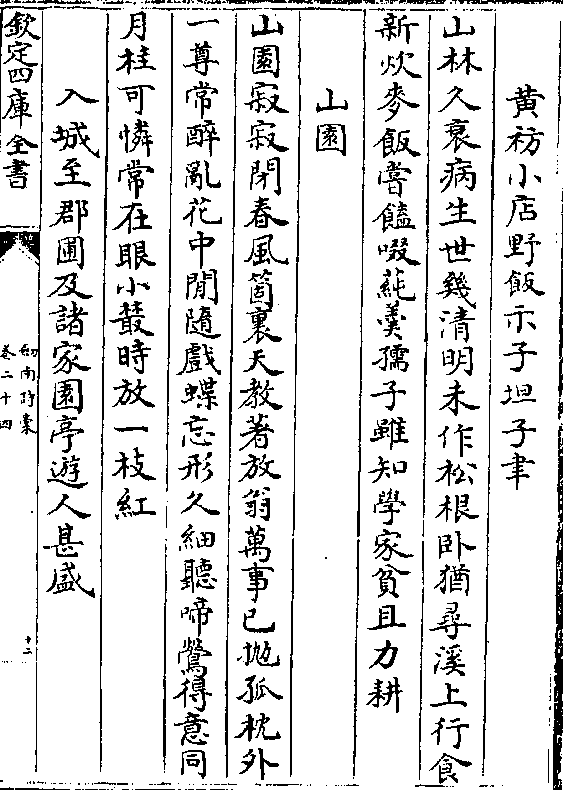 黄祊小店野飯示子坦子聿
山林久衰病生世幾清明未作松根卧猶尋溪上行食
新炊麥飯嘗饁啜蓴羮孺子雖知學家貧且力耕
山園
山園寂寂閉春風箇裏天教著放翁萬事已抛孤枕外
一尊常醉亂花中閒隨戲蝶忘形久細聽啼鶯得意同
月桂可憐常在眼小叢時放一枝紅
入城至郡圃及諸家園亭遊人甚盛
欽定四庫全書
劍南詩藁
卷二十四
十二